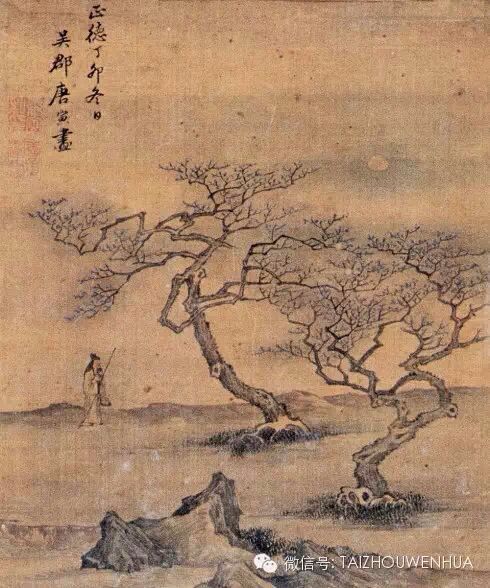 正德丁卯冬日
吴郡唐寅畫
微信号: TAIZHOUWENHUA